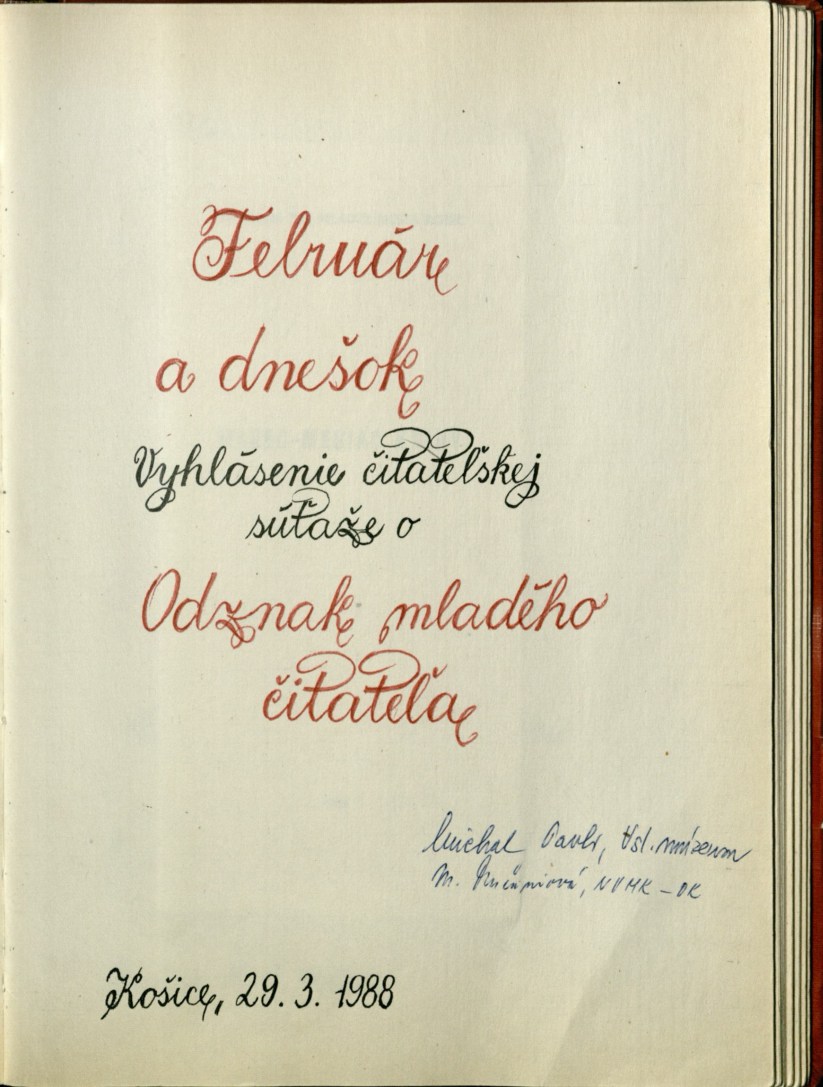 Február
a dnešok
Vyhlásenie čitateľskej
súťaže o
Odznak mladého
čitateľa
Michal Pavlí, Vsl. múzeum
M., NVMK – OK
Košice, 29. 3. 1988